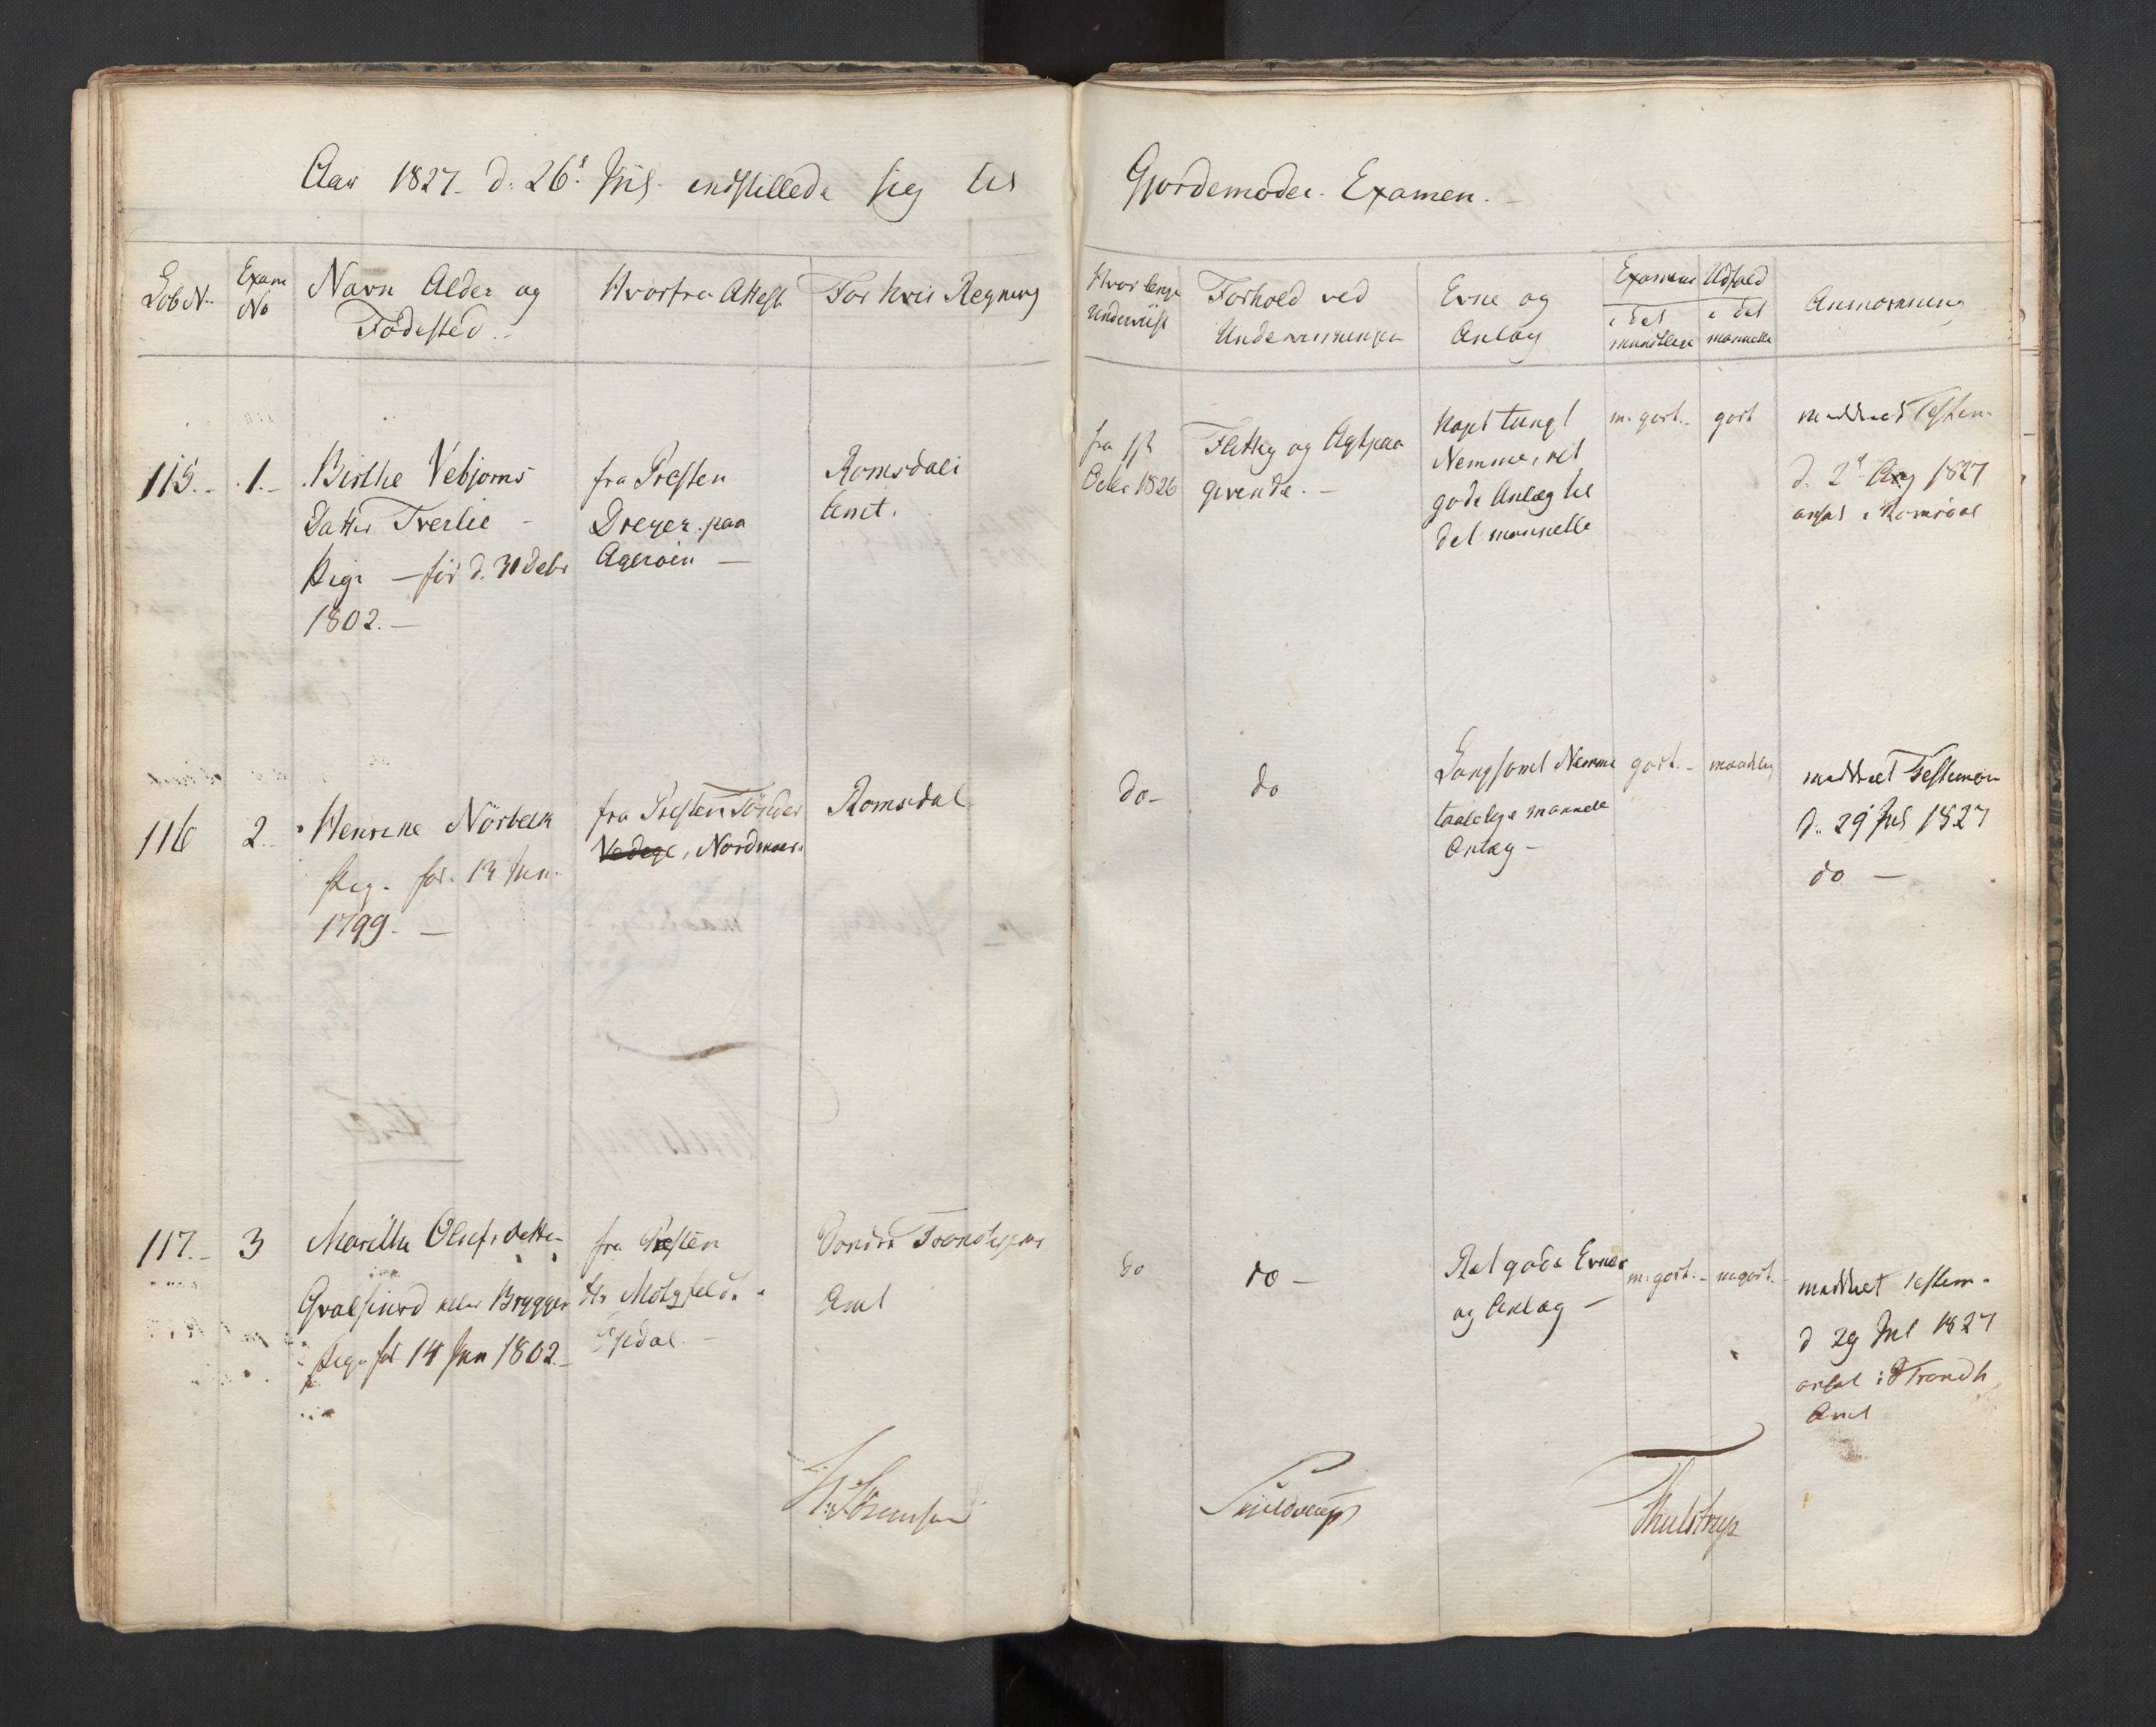 Aar 1827 d. 26de Juli indstillede sig til
Gjordemoder Examen.
Løb N. Exam No Navn Alder og Fødested Hvorfra Attest For hvis Regning
Hvor længe Underviist Forhold ved Underviisningen Evne og Anlæg Examens Udfald i det mundtlige i det manuelle Anmærkning
115. 1. Birthe Vebjørns
Datter Tverlie
Pige – fød d. 31 Debr
1802.
fra Præsten
Dreyer paa
Agerøen
Romsdals
Amt.
fra 1ste
Octbr 1826
Flittig og Agtpaa
givende.
Noget tungt
Nemme, ret
gode Anlæg til
det manuelle
m. godt.
godt
meddeelt Testim.
d. 2d Aug 1827
ansat i Romsdal
116 2. Henrike Nörbech
Pige. fød. 13 Jun.
1799.
fra Præsten Tönder
Nordmøer.
Romsdal
do
do
Langsomt Nemme
taalelige manuelle
Anlæg
godt.
maadelig
meddeelt Testimon
d. 29 Juli 1827
do
117. 3 Marithe Olufsdatter
eller Brygger
Pige fød 14 Jun 1802.
fra Præsten
Hr Motzfeldt
Opdal
Søndre Trondhjems
Amt
do
do
Ret gode Evner
og Anlæg
m. godt.
m. godt.
meddeelt Testim.
d 29 Jul 1827
ansat i S Trondh
Amt
Sørensen
Skjelderup
Thulstrup